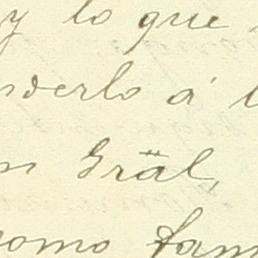 y lo que
nderlo á
Gräl,
como fam